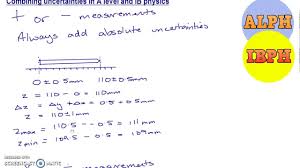 Combining uncertainties in A level and IB physics
+ or - measurements
Always add absolute uncertainties
0 ± 0.5mm 110 ± 0.5mm
z = 110 - 0 = 110mm
Δz = Δy + Δx = 0.5 + 0.5
z = 110 ± 1mm
Zmax = 110.5 - -0.5 = 111mm
Zmin = 109.5 - 0.5 = 109mm
- measurements
ALPH
IBPH
SCREENCAST-O-MATIC